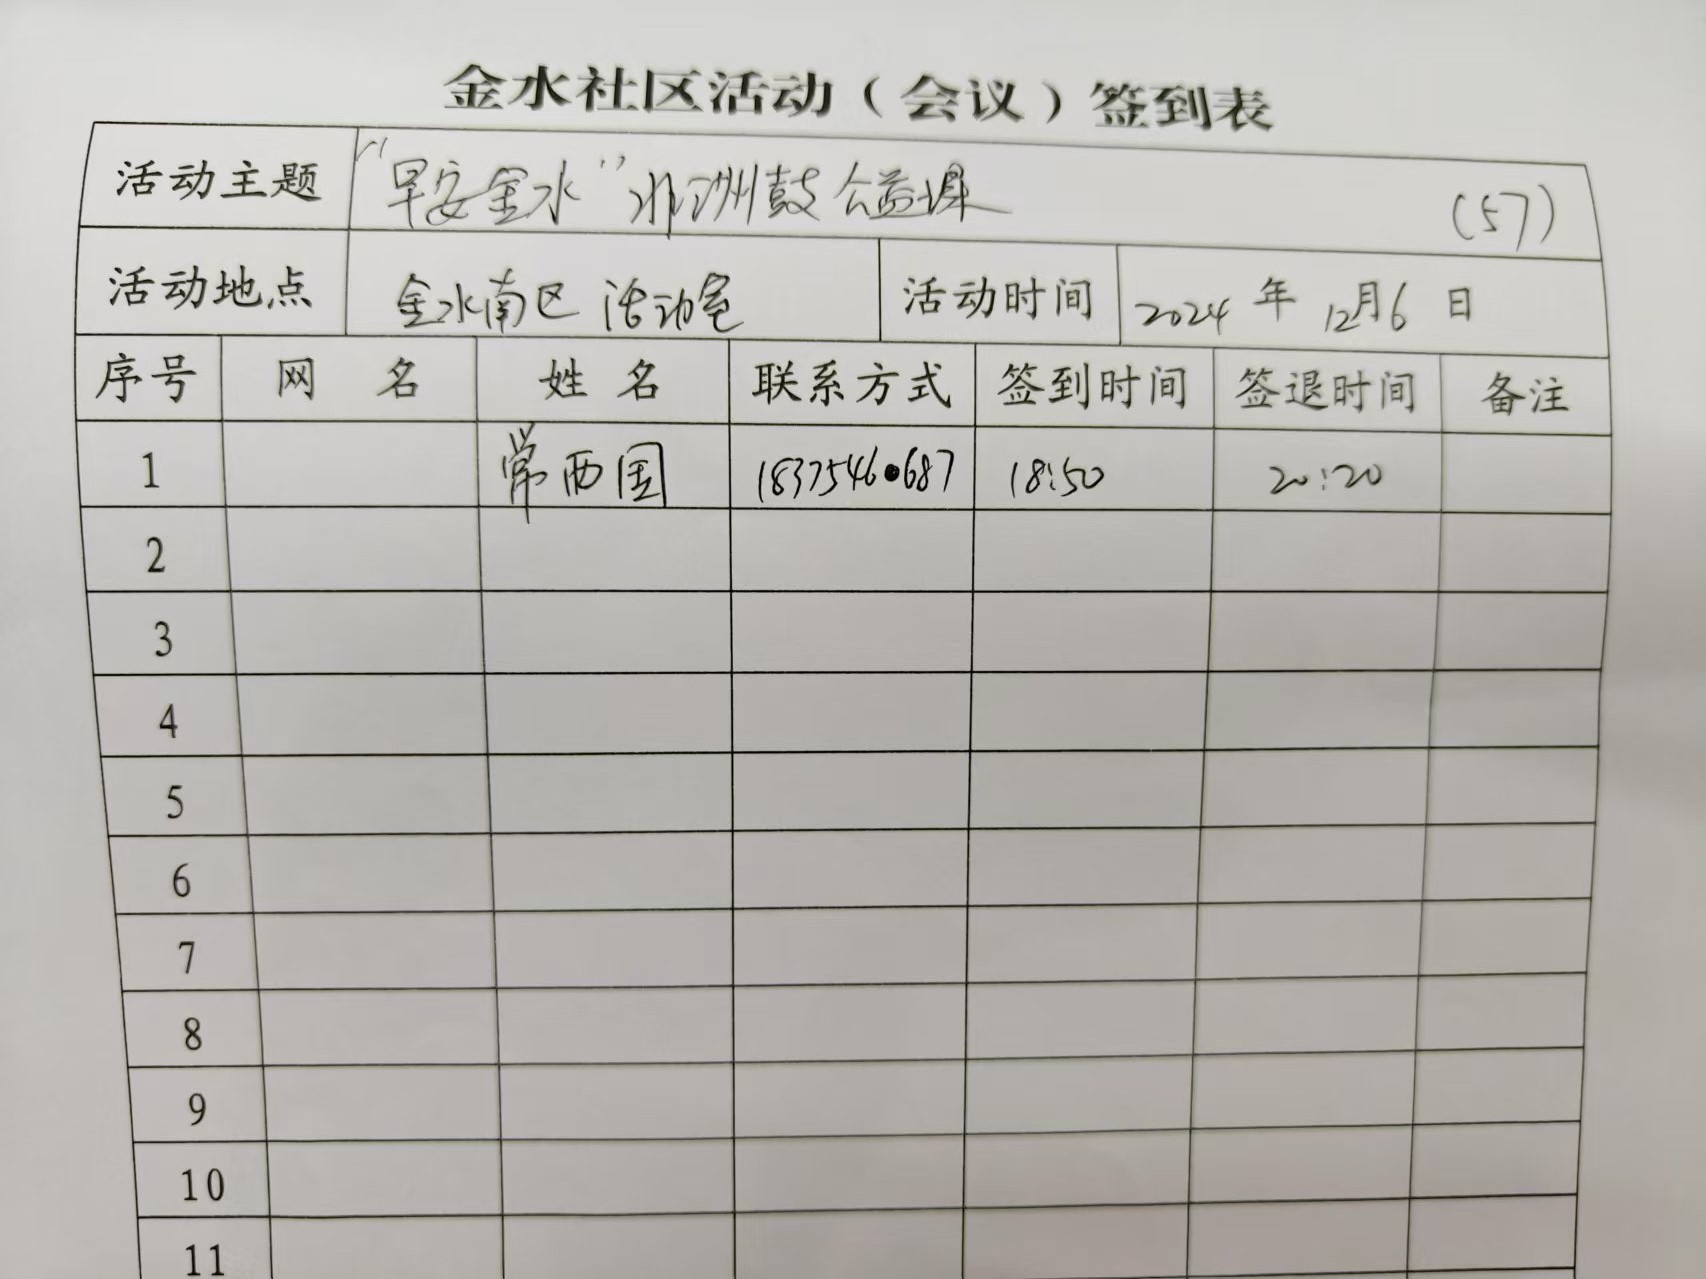 金水社区活动（会议）签到表
活动主题 “早安金水”非洲鼓公益课 (57)
活动地点 金水南区 活动室 活动时间 2024 年 12月6 日
序号 网 名 姓 名 联系方式 签到时间 签退时间 备注
1 常西国 1837546●687 18:50 20:20
2
3
4
5
6
7
8
9
10
11